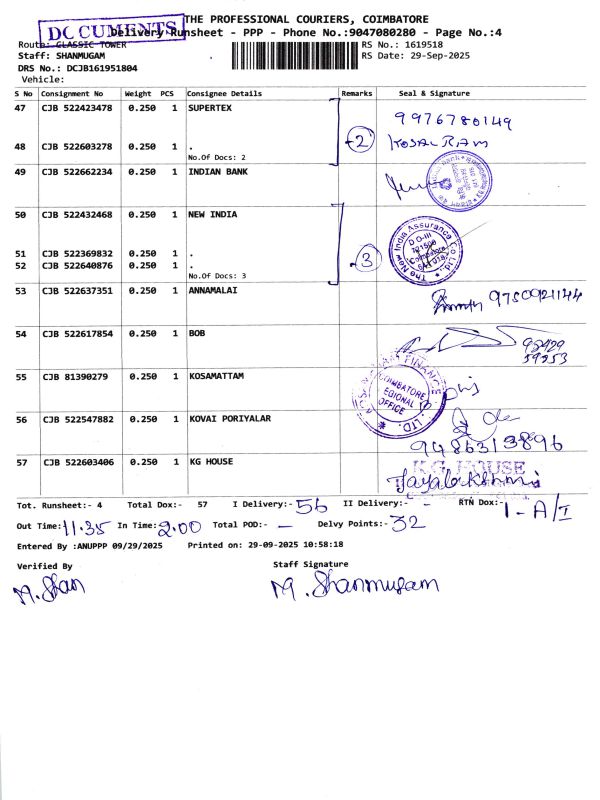 THE PROFESSIONAL COURIERS, COIMBATORE
DOCUMENTS
Delivery Runsheet - PPP - Phone No.:9047080280 - Page No.:4
Route: CLASSIC TOWER
RS No.: 1619518
Staff: SHANMUGAM
RS Date: 29-Sep-2025
DRS No.: DCJB161951804
Vehicle:
S No Consignment No Weight PCS Consignee Details Remarks Seal & Signature
47 CJB 522423478 0.250 1 SUPERTEX
9976780149
48 CJB 522603278 0.250 1 .
-2
KOSAL RAM
No.Of Docs: 2
49 CJB 522662234 0.250 1 INDIAN BANK
50 CJB 522432468 0.250 1 NEW INDIA
The New India Assurance Co. Ltd.
D O-III
721500
Coimbatore
51 CJB 522369832 0.250 1 .
52 CJB 522640876 0.250 1 .
-3
No.Of Docs: 3
53 CJB 522637351 0.250 1 ANNAMALAI
9750921144
54 CJB 522617854 0.250 1 BOB
98429
59253
55 CJB 81390279 0.250 1 KOSAMATTAM
FINANCE LTD.
COIMBATORE
REGIONAL
OFFICE
56 CJB 522547882 0.250 1 KOVAI PORIYALAR
9486313896
57 CJB 522603406 0.250 1 KG HOUSE
K.G. HOUSE
Jayalakshmi
Tot. Runsheet:- 4 Total Dox:- 57 I Delivery:- 56 II Delivery:- - RTN Dox:- 1 - A/I
Out Time: 11.35 In Time: 2.00 Total POD:- - Delvy Points:- 32
Entered By :ANUPPP 09/29/2025 Printed on: 29-09-2025 10:58:18
Verified By Staff Signature
M. Shan M. Shanmugam